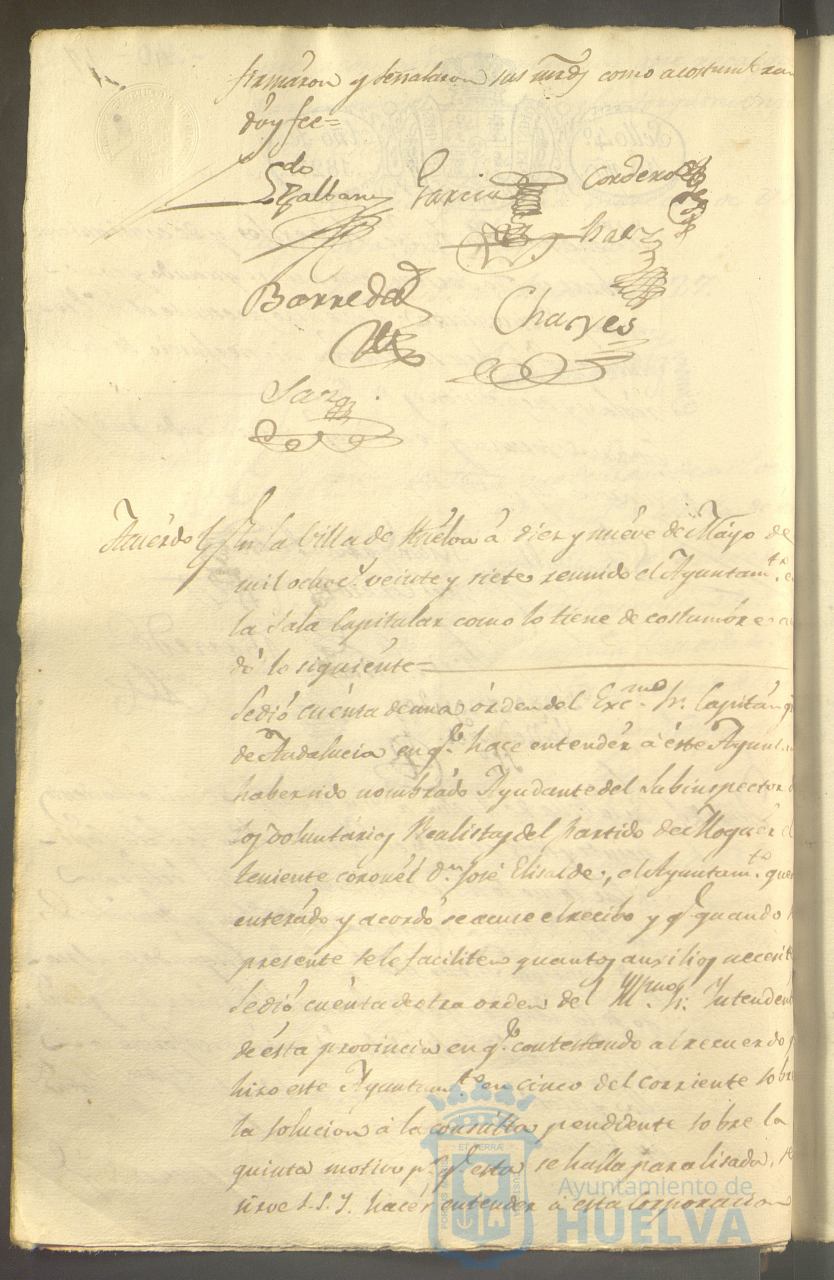 firmaron y señalaron sus mrds como acostumbran
doy fee=
Ldo
Galban Garcia Cordero
Saez
Barreda
Charves
Sanz
Acuerdo En la Villa de Huelva à diez y nuéve de Mayo de
mil ochocs. veinte y siete reunido el Ayuntamto. e
la Sala Capitular como lo tiene de costumbre a
dó lo siguiénte=
Sedió cuénta de una órden del Excmo. Sr. Capitán g
de Andalucia en qe. hace entendér à éste Ayunt
haber sido nombrádo Ayudante del Subinspector d
los Voluntários Realistas del partido de Moguér el
teniente coronél Dn. José Elisalde, el Ayuntamto. que
enterádo y acordó se acuse el recibo y qe. quando
presente se le faciliten quantos ausilios necesit
Sedió cuénta de otra orden del Yllmo. Sr. Intendent
de ésta provincia en qe. contestando al recuerdo
hizo este Ayuntamto. en cinco del corriente sobre
la solucion à la consulta pendiente sobre la
quinta motivo pr. qe. esta se halla paralisada, se
sirve S.S.Y. hacer entender à esta Corporacion
Ayuntamiento de
HUELVA